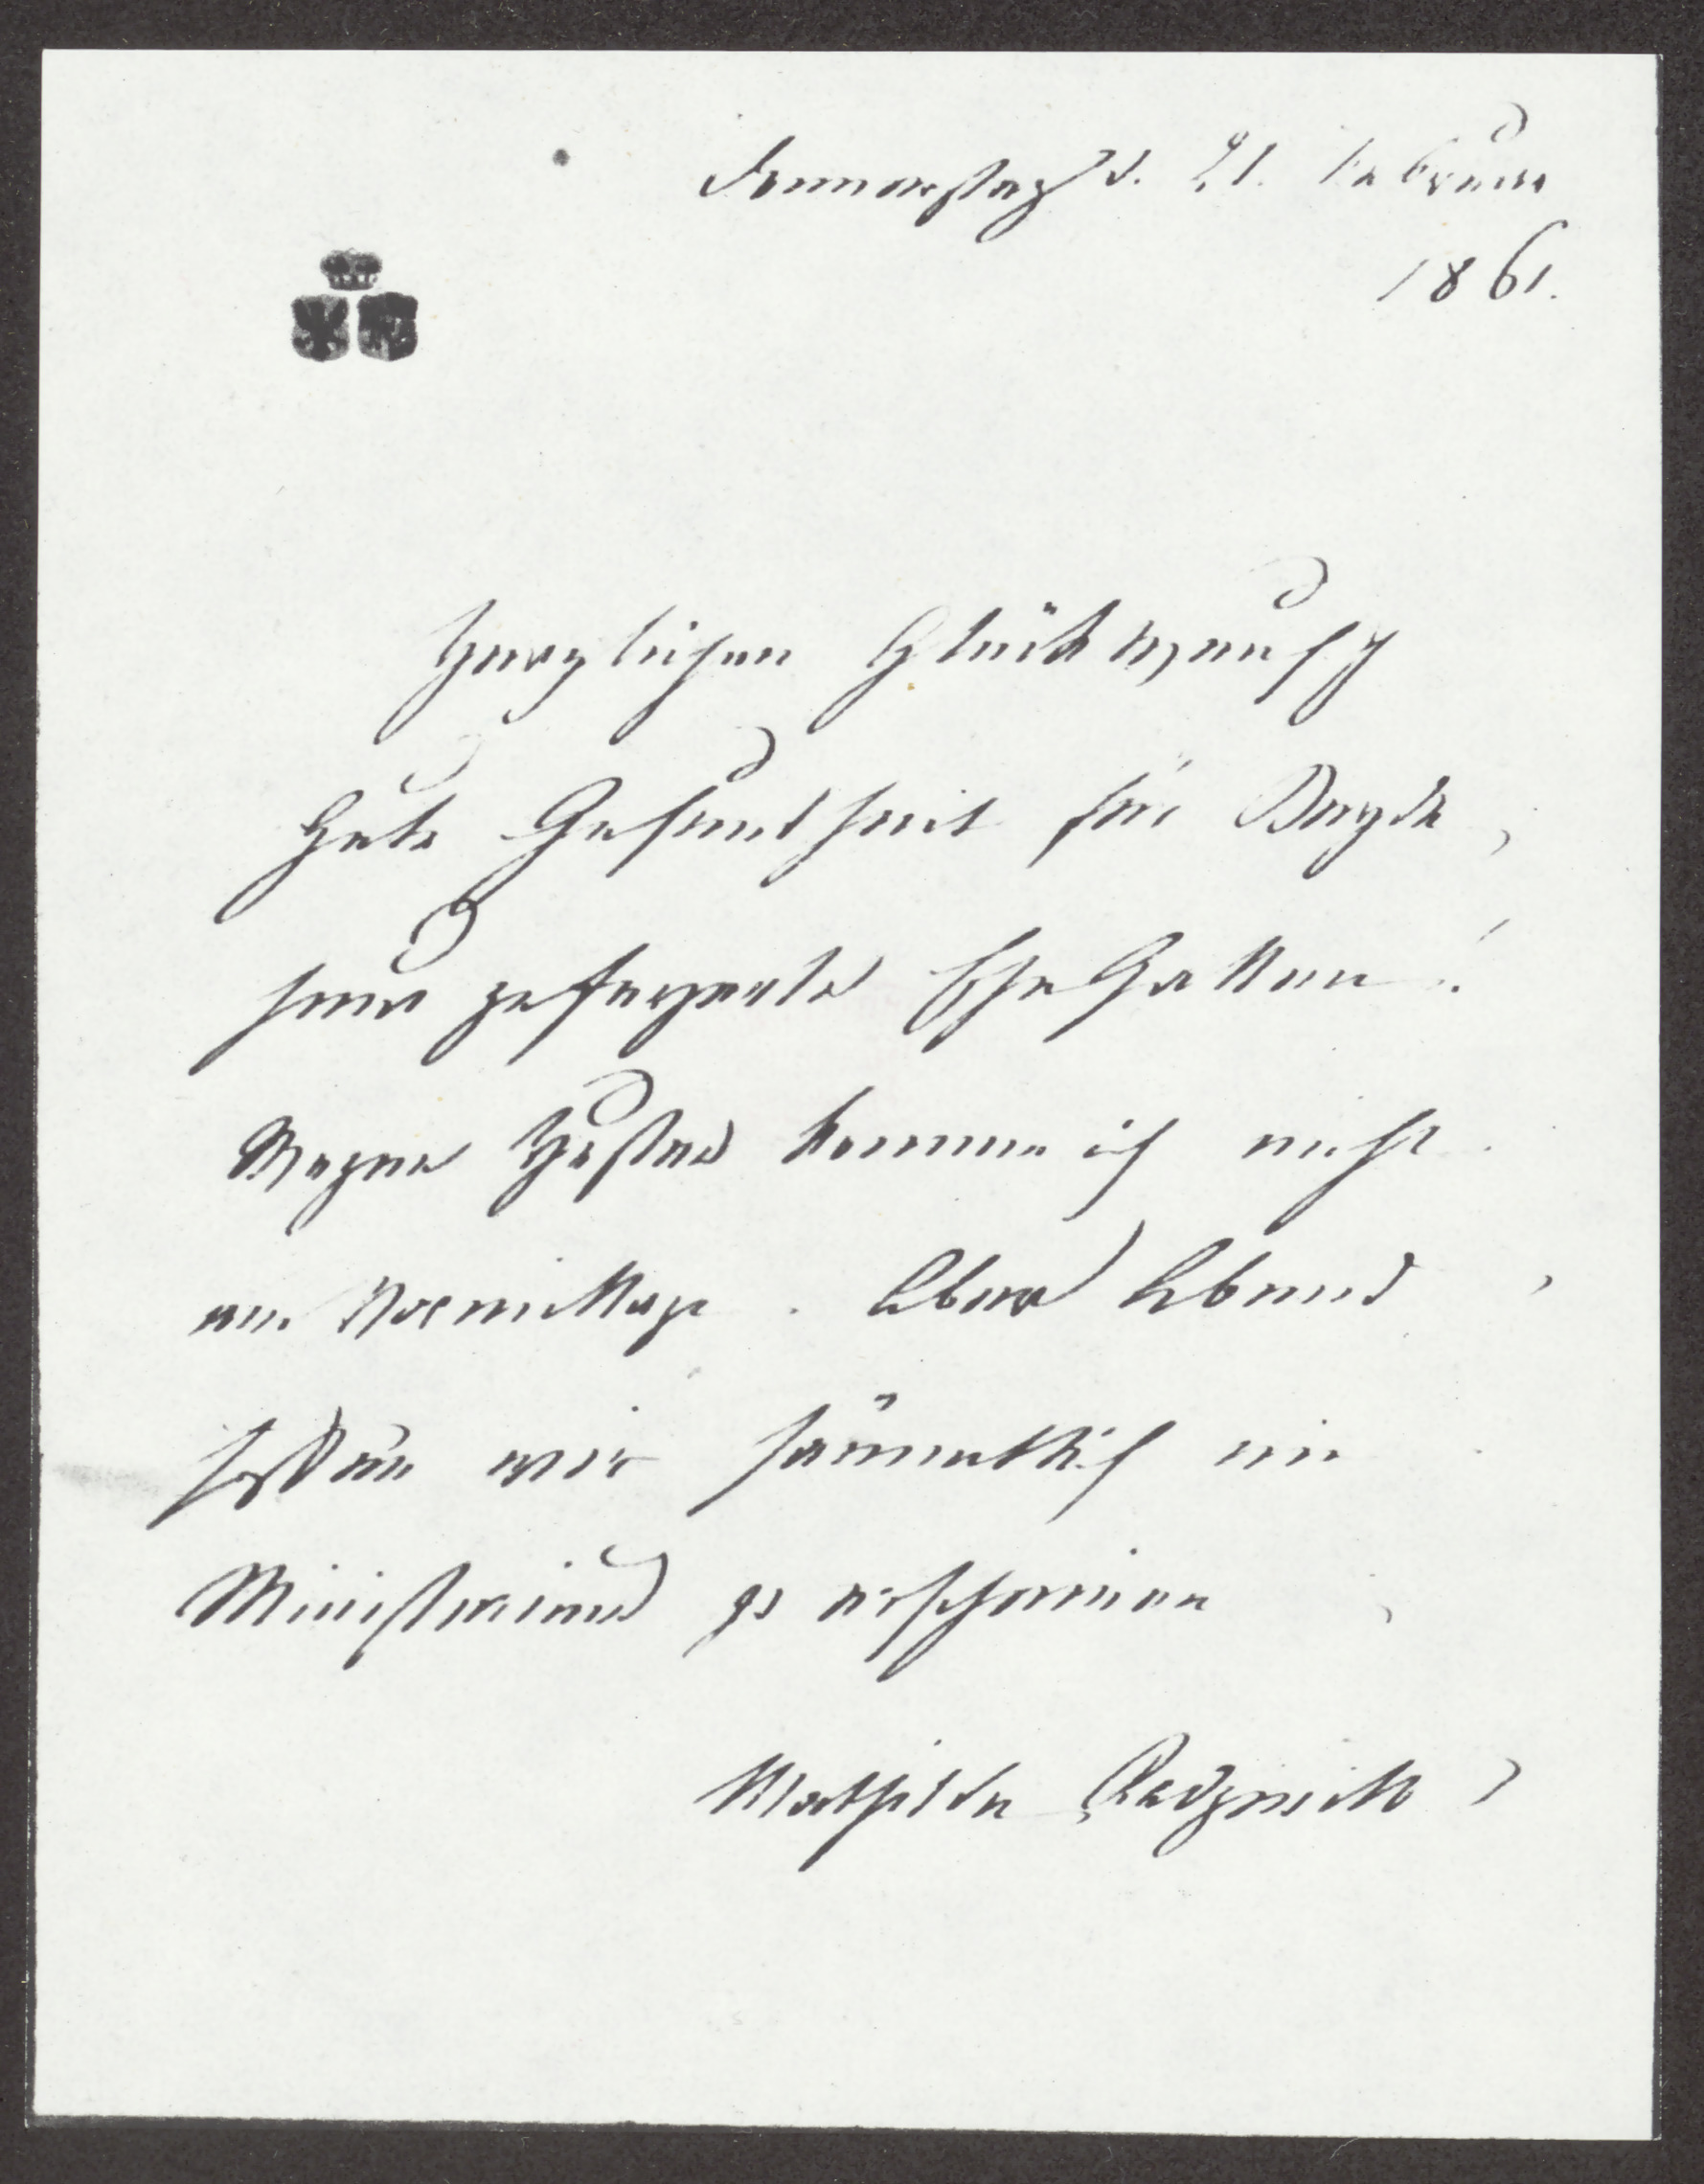 Donnerstag d. 21. Februar
1861.
Herzlichen Glückwunsch
Gute Gesundheit für Beyde
Ehe Gatten!
Wegen Husten komme ich nicht
am Vormittage. Aber Abend
hoffen wir sämmtlich im
Ministerium zu erscheinen
Mathilde Radziwill